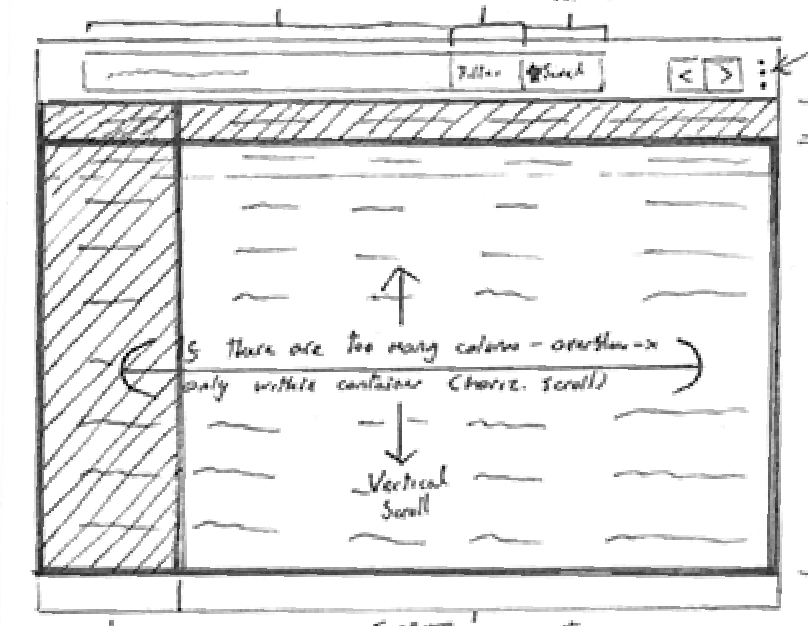 Filter Search
< >
If there are too many columns - overflow-x
only within container (horiz. scroll)
Vertical
Scroll